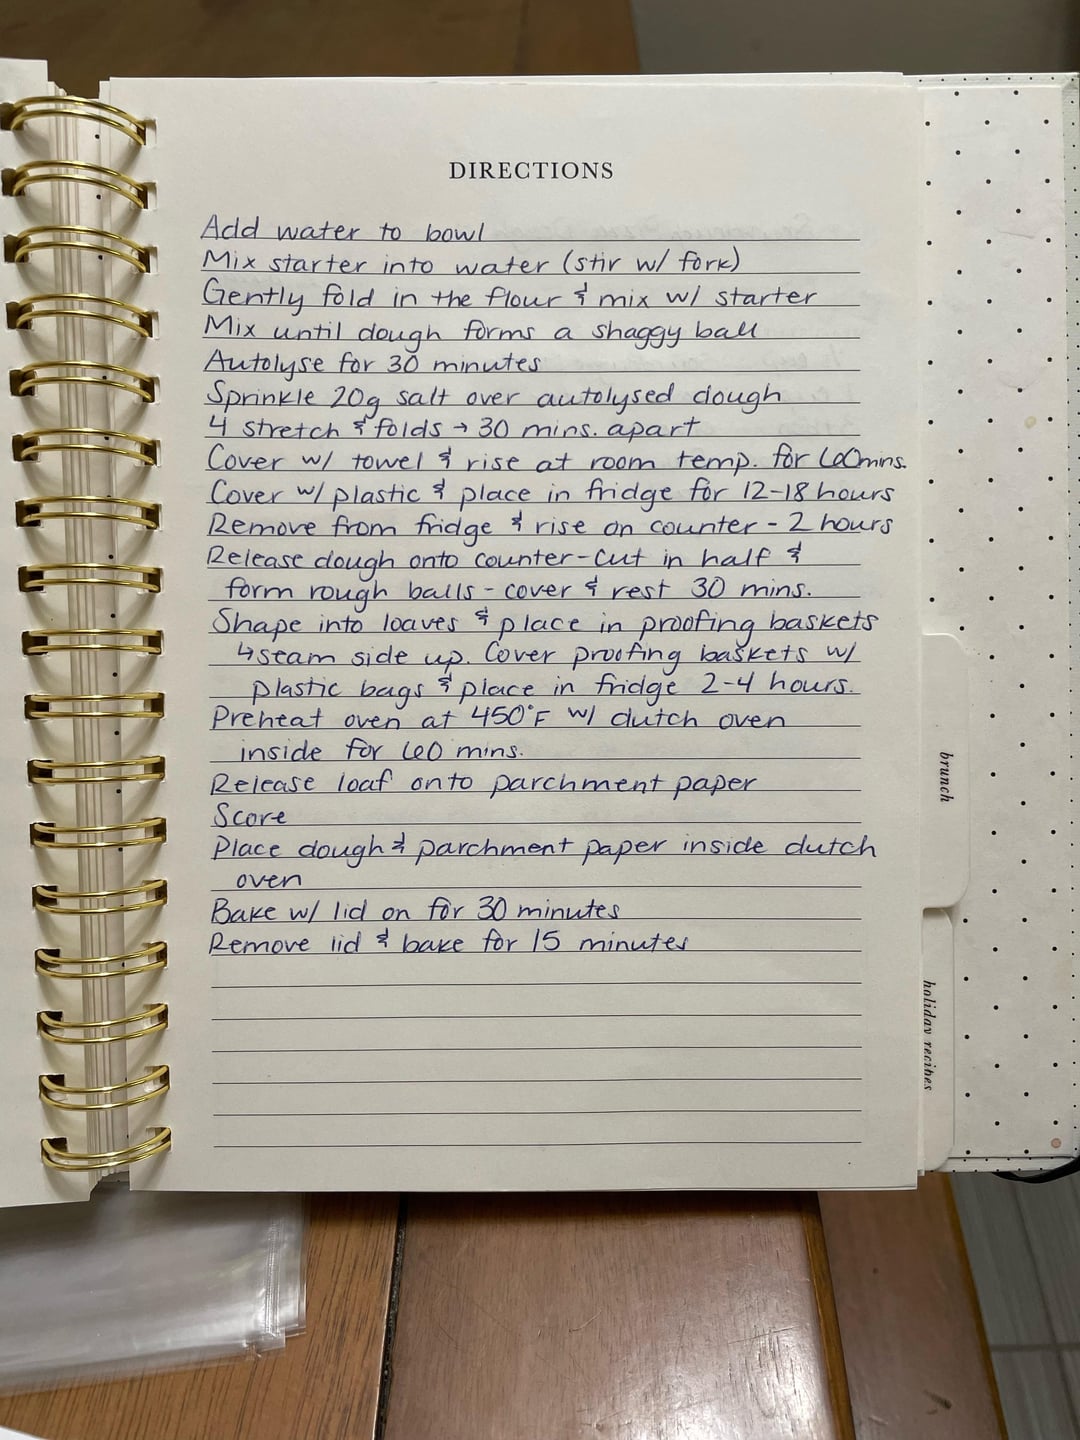 DIRECTIONS
Add water to bowl
Mix starter into water (stir w/ fork)
Gently fold in the flour & mix w/ starter
Mix until dough forms a shaggy ball
Autolyse for 30 minutes
Sprinkle 20g salt over autolysed dough
4 stretch & folds → 30 mins. apart
Cover w/ towel & rise at room temp. for 60mins.
Cover w/ plastic & place in fridge for 12-18 hours
Remove from fridge & rise on counter - 2 hours
Release dough onto counter-cut in half &
form rough balls - cover & rest 30 mins.
Shape into loaves & place in proofing baskets
↳ seam side up. Cover proofing baskets w/
plastic bags & place in fridge 2-4 hours.
Preheat oven at 450°F w/ dutch oven
inside for 60 mins.
Release loaf onto parchment paper
Score
Place dough & parchment paper inside dutch
oven
Bake w/ lid on for 30 minutes
Remove lid & bake for 15 minutes
brunch
holiday recipes